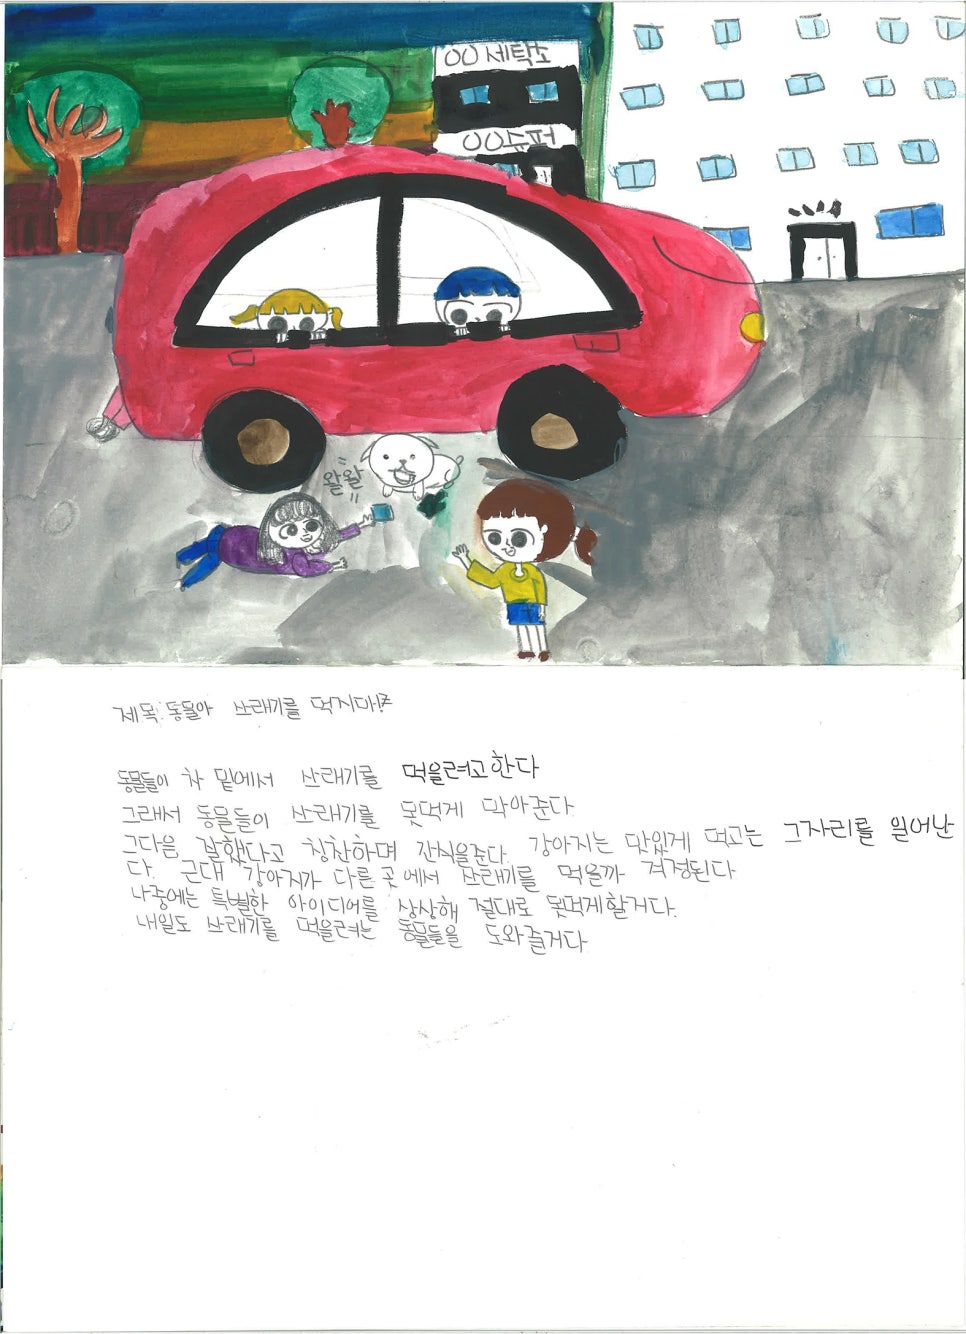 OO세탁소
OO슈퍼
왈왈
제목:동물아 쓰래기를 먹지마!
동물들이 차 밑에서 쓰래기를 먹을려고한다
그래서 동물들이 쓰래기를 못먹게 막아준다.
그다음 잘했다고 칭찬하며 간식을준다. 강아지는 맛있게 먹고는 그자리를 일어난
다. 근대 강아지가 다른 곳에서 쓰래기를 먹을까 걱정된다
나중에는 특별한 아이디어를 상상해 절대로 못먹게할거다.
내일도 쓰래기를 먹을려는 동물들을 도와줄거다